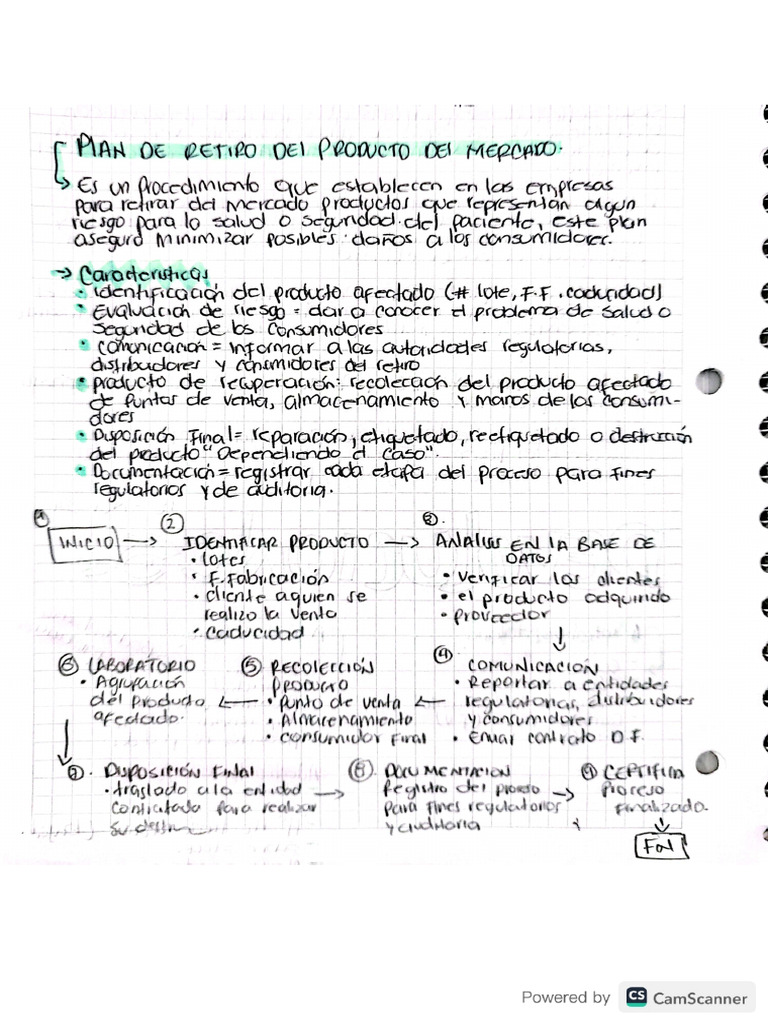 PLAN DE RETIRO DEL PRODUCTO DEL MERCADO.
Es un procedimiento que establecen en las empresas
para retirar del mercado productos que representan algun
riesgo para la salud o seguridad del paciente, este plan
asegura minimizar posibles daños a los consumidores.
→ Caracteristicas
• identificación del producto afectado (# lote, F.F. caducidad)
• Evaluacion de riesgo = dar a conocer el problema de salud o
Seguridad de los Consumidores
• comunicacion = informar a las autoridades regulatorias,
distribuidores y consumidores del retiro
• producto de recuperación: recolección del producto afectado
de puntos de venta, almacenamiento y manos de los consumi-
dores
• Disposición Final = reparación, etiquetado, reetiquetado o destrucción
del producto "Dependiendo el caso".
• Documentación = registrar cada etapa del proceso para fines
regulatorios y de auditoria.
① INICIO → ② IDENTIFICAR PRODUCTO → ③. ANALISIS EN LA BASE DE
DATOS
• lotes
• F. Fabricación • Verificar los clientes
• cliente a quien se • el producto adquirido
realizo la venta • Proveedor
• caducidad
⑥ LABORATORIO ⑤ RECOLECCIÓN ④ COMUNICACION
• Agrupación PRODUCTO • Reportar a entidades
del producto ← • punto de venta ← regulatorias, distribuidores
afectado. • Almacenamiento y consumidores
• consumidor final • Enviar contrato D.F.
⑦. DISPOSICIÓN FINAL ⑧. DOCUMENTACION ⑨ CERTIFICA
• traslado a la entidad → Registro del proceso → Proceso
contratada para realizar para fines regulatorios finalizado.
su y auditoria
Fin
Powered by CS CamScanner